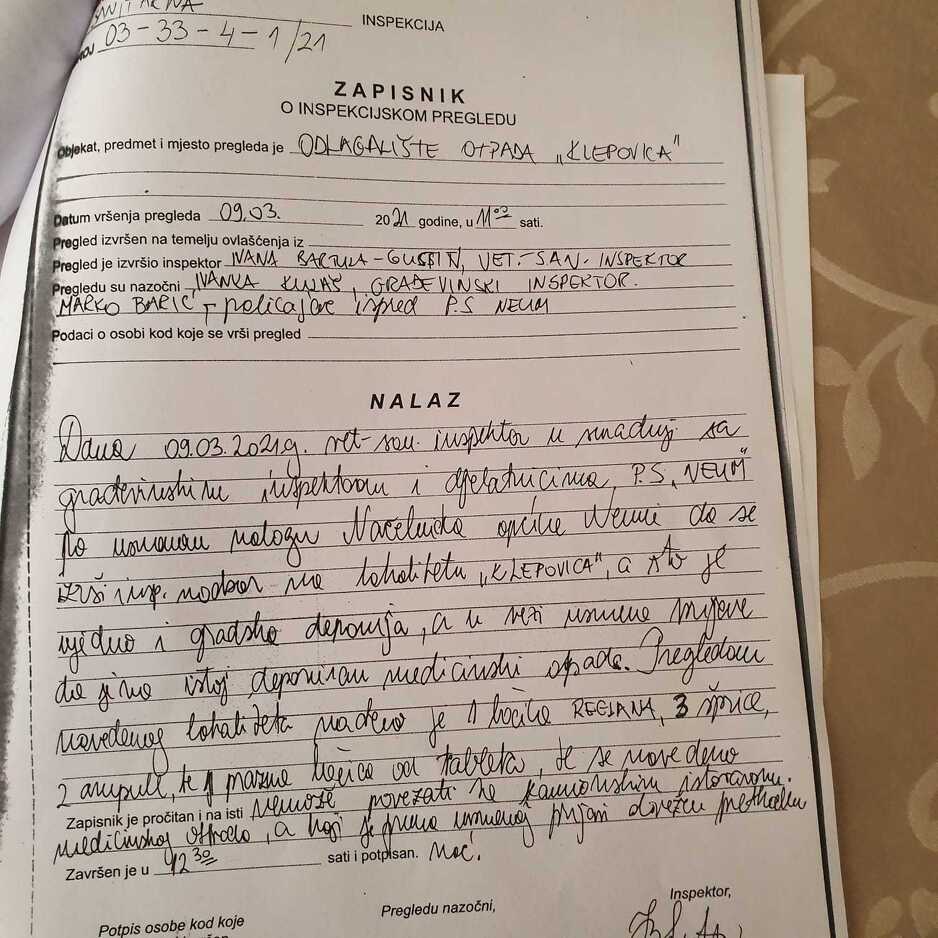 SANITARNA INSPEKCIJA
BROJ 03-33-4-1/21
ZAPISNIK
O INSPEKCIJSKOM PREGLEDU
Objekat, predmet i mjesto pregleda je ODLAGALIŠTE OTPADA „KLEPOVICA“
Datum vršenja pregleda 09.03. 2021 godine, u 11 00 sati.
Pregled izvršen na temelju ovlašćenja iz
Pregled je izvršio inspektor IVANA BARTULA-GUSTIN, VET.-SAN. INSPEKTOR
Pregledu su nazočni IVANKA GRAĐEVINSKI INSPEKTOR.
MARKO BARIĆ - policajac ispred P.S NEUM
Podaci o osobi kod koje se vrši pregled
NALAZ
Dana 09.03.2021g. vet-san. inspektor u suradnji sa
građevinskim inspektorom i djelatnicima P.S. „NEUM“
po usmenom nalogu Načelnika općine Neum da se
izvši insp. nadzor na lokalitetu „KLEPOVICA“, a što je
ujedno i gradska deponija, a u vezi usmene prijave
da je na istoj deponiran medicinski otpada. Pregledom
navedenog lokaliteta nađeno je 1 bočica 3 šprice,
2 ampule, te 1 prazna bočica od tableta, te se navedeno
Zapisnik je pročitan i na isti nemože povezati sa kamionskim istovarom.
medicinskog otpada, a koji je prema usmenoj prijavi dovežen prethodnu
Završen je u 12 30 sati i potpisan. noć.
Potpis osobe kod koje
Pregledu nazočni,
Inspektor,